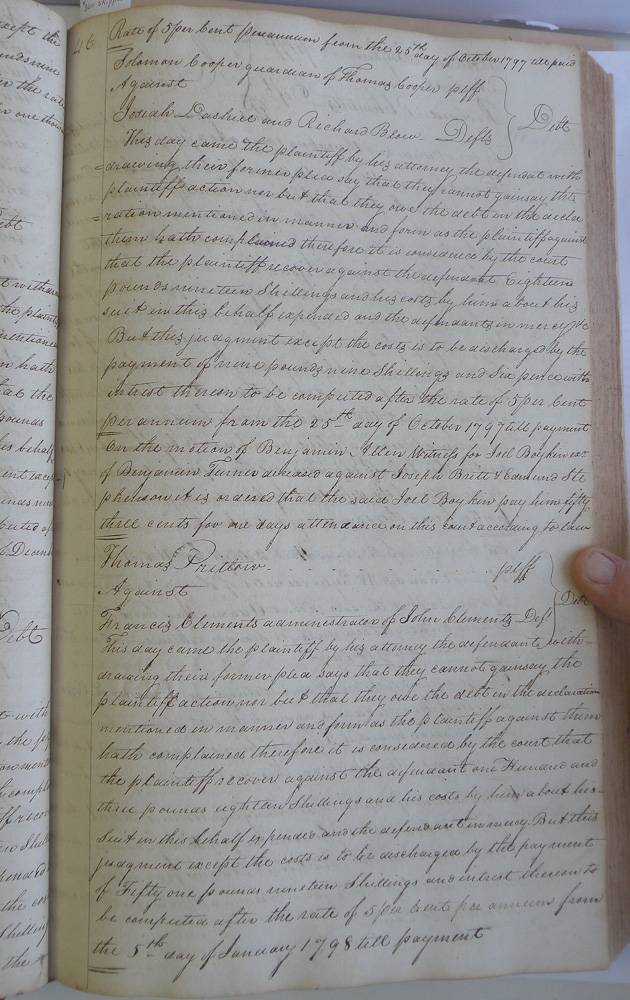 46
Rate of 5 per Cent per annum from the 25th day of October 1797 till paid
Solomon Cooper guardian of Thomas Cooper plff
Against
Debt
Josiah Dashiel and Richard Blow Defts
This day came the plaintiff by his attorney the defendat with
=drawing their former plea say that they cannot gainsay the
plaintiff action nor but that they owe the debt in the decla
=ration mentioned in manner and form as the plaintiff against
them hath complained therefore it is considered by the court
that the plaintiff recover against the defendant Eighteen
pounds nineteen Shillings and his costs by him about his
suit in this behalf expended and the defendants in mercy &c
But this judgment except the costs is to be discharged by the
payment of nine pounds nine Shillings and Six pence with
intrest thereon to be computed after the rate of 5 per Cent
per annum from the 25th day of October 1797 till payment
On the motion of Benjamin Allen Witness for Joel Boykin exr
of Benjamin Turner deceased against Joseph Britt & Edmund Ste
phenson it is ordered that the said Joel Boykin pay him fifty
three cents for one days attendance on this court according to law
Thomas Pritlow plff
Against
Debt
Francis Clements administrator of John Clements Deft
This day came the plaintiff by his attorney the defendants with-
drawing their former plea says that they cannot gainsay the
plaintiff action nor but that they owe the debt in the declaration
mentioned in manner and form as the plaintiff against them
hath complained therefore it is considered by the court that
the plaintiff recover against the defendant one Hundred and
three pounds eighteen Shillings and his costs by him about his
Suit in this behalf expended and the defendant in mercy But this
judgment except the costs is to be discharged by the payment
of Fifty one pounds nineteen Shillings and intrest thereon to
be computed after the rate of 5 per Cent per annum from
the 5th day of January 1798 till payment